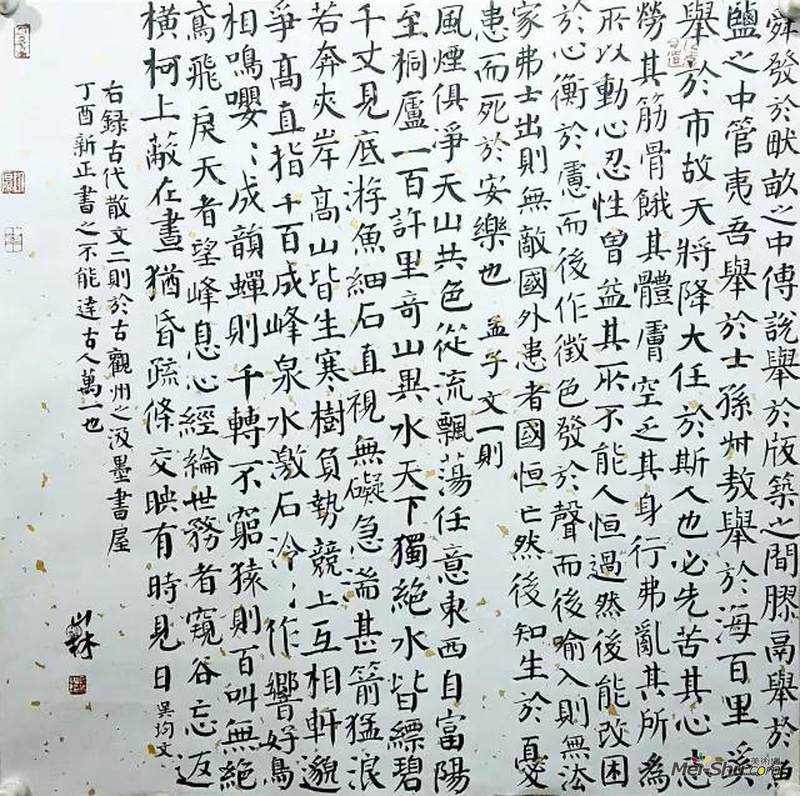 舜發於畎畝之中傅說舉於版築之間膠鬲舉於魚
鹽之中管夷吾舉於士孫叔敖舉於海百里奚
舉於市故天將降大任於斯人也必先苦其心志
勞其筋骨餓其體膚空乏其身行弗亂其所為
所以動心忍性曾益其所不能人恒過然後能改困
於心衡於慮而後作徵色發於聲而後喻入則無法
家弗士出則無敵國外患者國恒亡然後知生於憂
患而死於安樂也 孟子文一則
風煙俱淨天山共色從流飄蕩任意東西自富陽
至桐廬一百許里奇山異水天下獨絕水皆縹碧
千丈見底游魚細石直視無礙急湍甚箭猛浪
若奔夾岸高山皆生寒樹負勢競上互相軒邈
爭高直指千百成峰泉水激石泠〻作響好鳥
相鳴嚶〻成韻蟬則千轉不窮猿則百叫無絕
鳶飛戾天者望峰息心經綸世務者窺谷忘返
橫柯上蔽在晝猶昏疏條交映有時見日 吳均文
右錄古代散文二則於古觀州之汲墨書屋
丁酉新正書之不能達古人萬一也
美術網
Mei-Shu.com